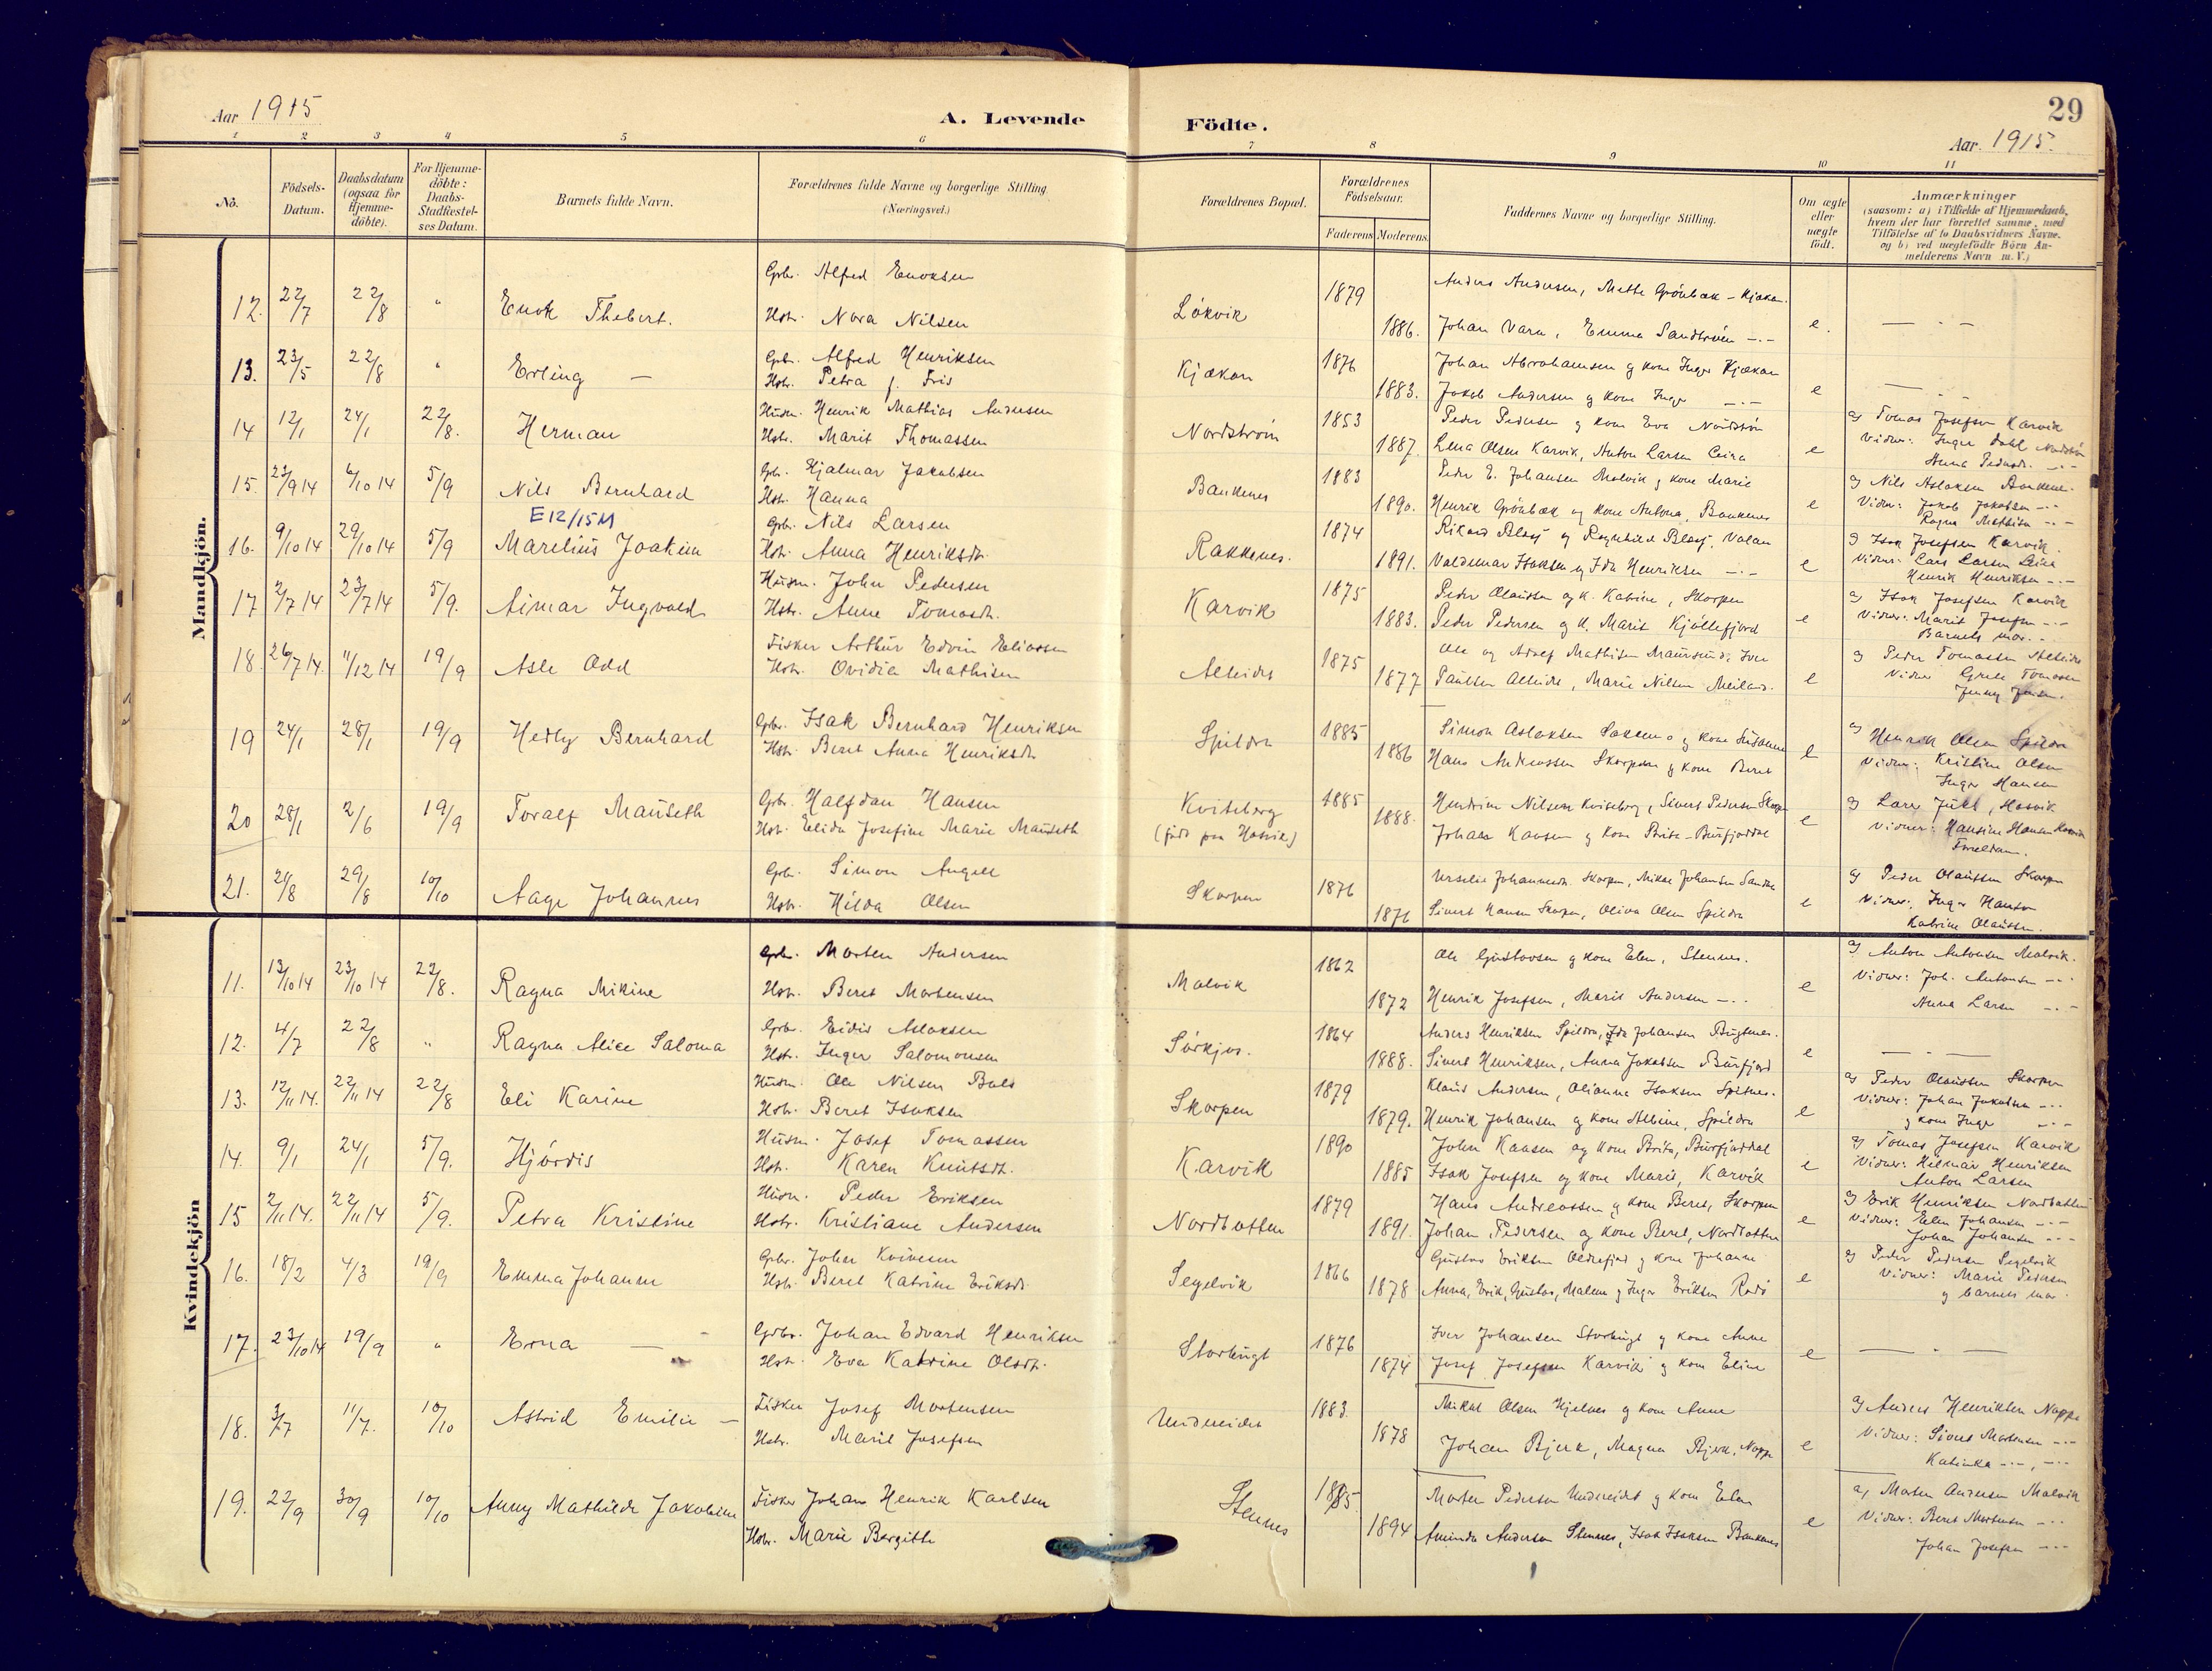 Aar 1915
A. Levende
Födte.
29
Aar. 1915.
1 2 3 4 5 6 7 8 9 10 11
No.
Födsels-
Datum.
Daabsdatum
(ogsaa for
Hjemme-
döbte).
For Hjemme-
döbte:
Daabs-
Stadfæstel-
ses Datum.
Barnets fulde Navn.
Forældrenes fulde Navne og borgerlige Stilling.
(Næringsvei.)
Forældrenes Bopæl.
Forældrenes
Födselsaar.
Faderens
Moderens.
Faddernes Navne og borgerlige Stilling.
Om ægte
eller
uægte
födt.
Anmærkninger
(saasom: a) i Tilfælde af Hjemmedaab,
hvem der har forrettet samme, med
Tilföielse af to Daabsvidners Navne.
og b) ved uægtefödte Börn An-
melderens Navn m. V.)
Mandkjön.
Gbr. Alfred Enoksen 1879 Anders Andersen, Mette Grönbæk - Kjækan.
12. 22/7 22/8 " Enok Thebert. Hstr. Nora Nilsen Lökvik 1886. Johan Vara, Emma Sandström -"- e.
13. 23/5 22/8 " Erling — Gbr. Alfred Henriksen Kjækan 1876 Johan Abrahamsen og kone Inger Kjækan
Hstr. Petra f. Fris 1883. Jakob Andersen og kone Inger -"- e
14 12/1 24/1 22/8. Herman Husm. Henrik Mathias Andersen Nordström 1853 Peder Pedersen og kone Eva Nordström a) Tomas Josefsen Karvik
Hstr. Marit Thomassen 1887. Lena Olsen Karvik, Anton Larsen e Vidner: Inger Dahl
15. 23/9 14 6/10 14 5/9 Nils Bernhard Gbr. Hjalmar Jakobsen Bankenes 1883 Peder E. Johansen Malvik og kone Marie a) Nils Aslaksen Bankenes.
Hstr. Hanna 1890. Henrik Grönbæk og kone Antona, Bankenes e Vidner: Jakob Jakobsen -"-
E12/15M Ragna Mathisen -"-
16. 9/10 14 29/10 14 5/9 Marelius Joakim Gbr. Nils Larsen Rakkenes. 1874 a) Isak Josefsen Karvik.
Hstr. Anna Henriksdt. 1891. Valdemar Isaksen og Ida Henriksen -"- e Vidner: Lars Larsen
Henrik Henriksen -"-
17 2/7 14 23/7 14 5/9. Aimar Ingvald Husm. John Pedersen Karvik 1875 Peder Olaussen og k. Katrine, Skorpen a) Isak Josefsen Karvik
Hstr. Anne Tomasdt. 1883. Peder Pedersen og k. Marit Kjöllefjord e Vidner: Marit Josefsen -"-
Barnets mor.
18. 26/7 14. 11/12 14 19/9 Asle Odd Fisker Arthur Edvin Eliassen Alteidet 1875 Ole og Adolf Mathisen Maursund, Iver a) Peder Tomassen Alteidet
Hstr. Ovidia Mathisen 1877 Paulsen Alteidet, Marie Nilsen Meiland. e Vidner Grete Tomassen
Jenny Jensen.
19 24/1 28/1 19/9 Hedly Bernhard Gbr. Isak Bernhard Henriksen Spildra 1885 Simon Aslaksen og kone Susanne a) Henrik Olsen Spildra
Hstr. Beret Anna Henriksdt. 1886 Hans Andreassen Skorpen og kone Beret e Vidner: Kristine Olsen
Inger Hansen
20 28/1 2/6 19/9 Toralf Mauseth Gbr. Halfdan Hansen Kviteberg 1885 Hendrine Nilsen Kviteberg, Sivert Pedersen Skorpen a) Lars Juul, Hasvik
Hstr. Elida Josefine Marie Mauseth (födt paa Hasvik) 1888. Johan Kaasen og kone Brita - Burfjorddal e Vidner: Hansine Hansen
Forældrene.
21. 24/8 29/8 10/10 Aage Johannes Gbr. Simon Angell Skorpen 1876 Urselie Johannesdt. Skorpen, Mikal Johansen a) Peder Olaussen Skorpen
Hstr. Hilda Olsen 1876 Sivert Hansen Skorpen, Oliva Olsen Spildra e Vidner: Inger Hansen
Katrine Olaussen.
Kvindekjön
11. 13/10 14 23/10 14 22/8. Ragna Mikine Gbr. Morten Andersen Malvik 1862 Ole Gustavsen og kone Elen, Stennes. a) Anton Antonsen Malvik.
Hstr. Beret Mortensen 1872 Henrik Josefsen, Marit Andersen -"- e Vidner: Joh. Antonsen -"-
Anna Larsen -"-
12. 4/7 22/8 " Ragna Alice Saloma Gbr. Eidis Aslaksen Sörkjos. 1864 Anders Henriksen Spildra, Ida Johansen Bugtenes.
Hstr. Inger Salomonsen 1888. Sivert Henriksen, Anna Jakobsen Burfjord e
13. 12/11 14. 22/11 14 22/8 Eli Karine Husm. Ole Nilsen Bals Skorpen 1879 Klaus Andersen, Olianna Isaksen a) Peder Olaussen Skorpen
Hstr. Beret Isaksen 1879. Henrik Johansen og kone Albine, Spildra e Vidner: Johan Jakobsen -"-
og kone Inger -"-
14. 9/1 24/1 5/9. Hjördis Husm. Josef Tomassen Karvik 1890 John Kaasen og kone Brita, Burfjorddal a) Tomas Josefsen Karvik
Hstr. Karen Knutsdt. 1885 Isak Josefsen og kone Marie, Karvik e Vidner: Hilmar Henriksen
Anton Larsen
15 2/11 14. 22/11 14 5/9. Petra Kristine Husm. Peder Eriksen Nordbotten 1879 Hans Andreassen og kone Beret, Skorpen a) Erik Henriksen Nordbotten
Hstr. Kristiane Andersen 1891. Johan Pedersen og kone Beret, Nordbotten e Vidner: Elen Johansen -"-
Johan Johansen -"-
16. 18/2 4/3 19/9 Emma Johanne Gbr. Johan Segelvik 1866 Gustav Eriksen Olderfjord og kone Johanne a) Peder Pedersen Segelvik
Hstr. Beret Katrine Eriksdt. 1878 Anna, Erik, Gustav, Malene og Inger Eriksen e Vidner: Marie Pedersen
og barnets mor.
17. 23/10 14 19/9 " Erna — Gbr. Johan Edvard Henriksen Storbugt 1876 Iver Johansen Storbugt og kone Anne
Hstr. Eva Katrine Olsdt. 1874 Josef Josefsen Karvik og kone Eline e
18. 3/7 11/7. 10/10 Astrid Emilie — Fisker Josef Mortensen Undereidet 1883. Mikal Olsen Hjelnes og kone Anne a) Anders Henriksen
Hstr. Marit Josefsen 1878 Johan Bjerk, Magna Bjerk, e Vidner: Sivert Mortensen -"-
Katinka -"-
19. 22/9 30/9 10/10 Anny Mathilde Jakobine Fisker Johan Henrik Karlsen Stennes 1885. Morten Pedersen Undereidet og kone Elen a) Morten Andersen Malvik
Hstr. Marie Bergitte 1894 Aminda Andersen Stennes, Isak Isaksen Bankenes e Vidner: Beret Mortensen -"-
Johan Josefsen -"-